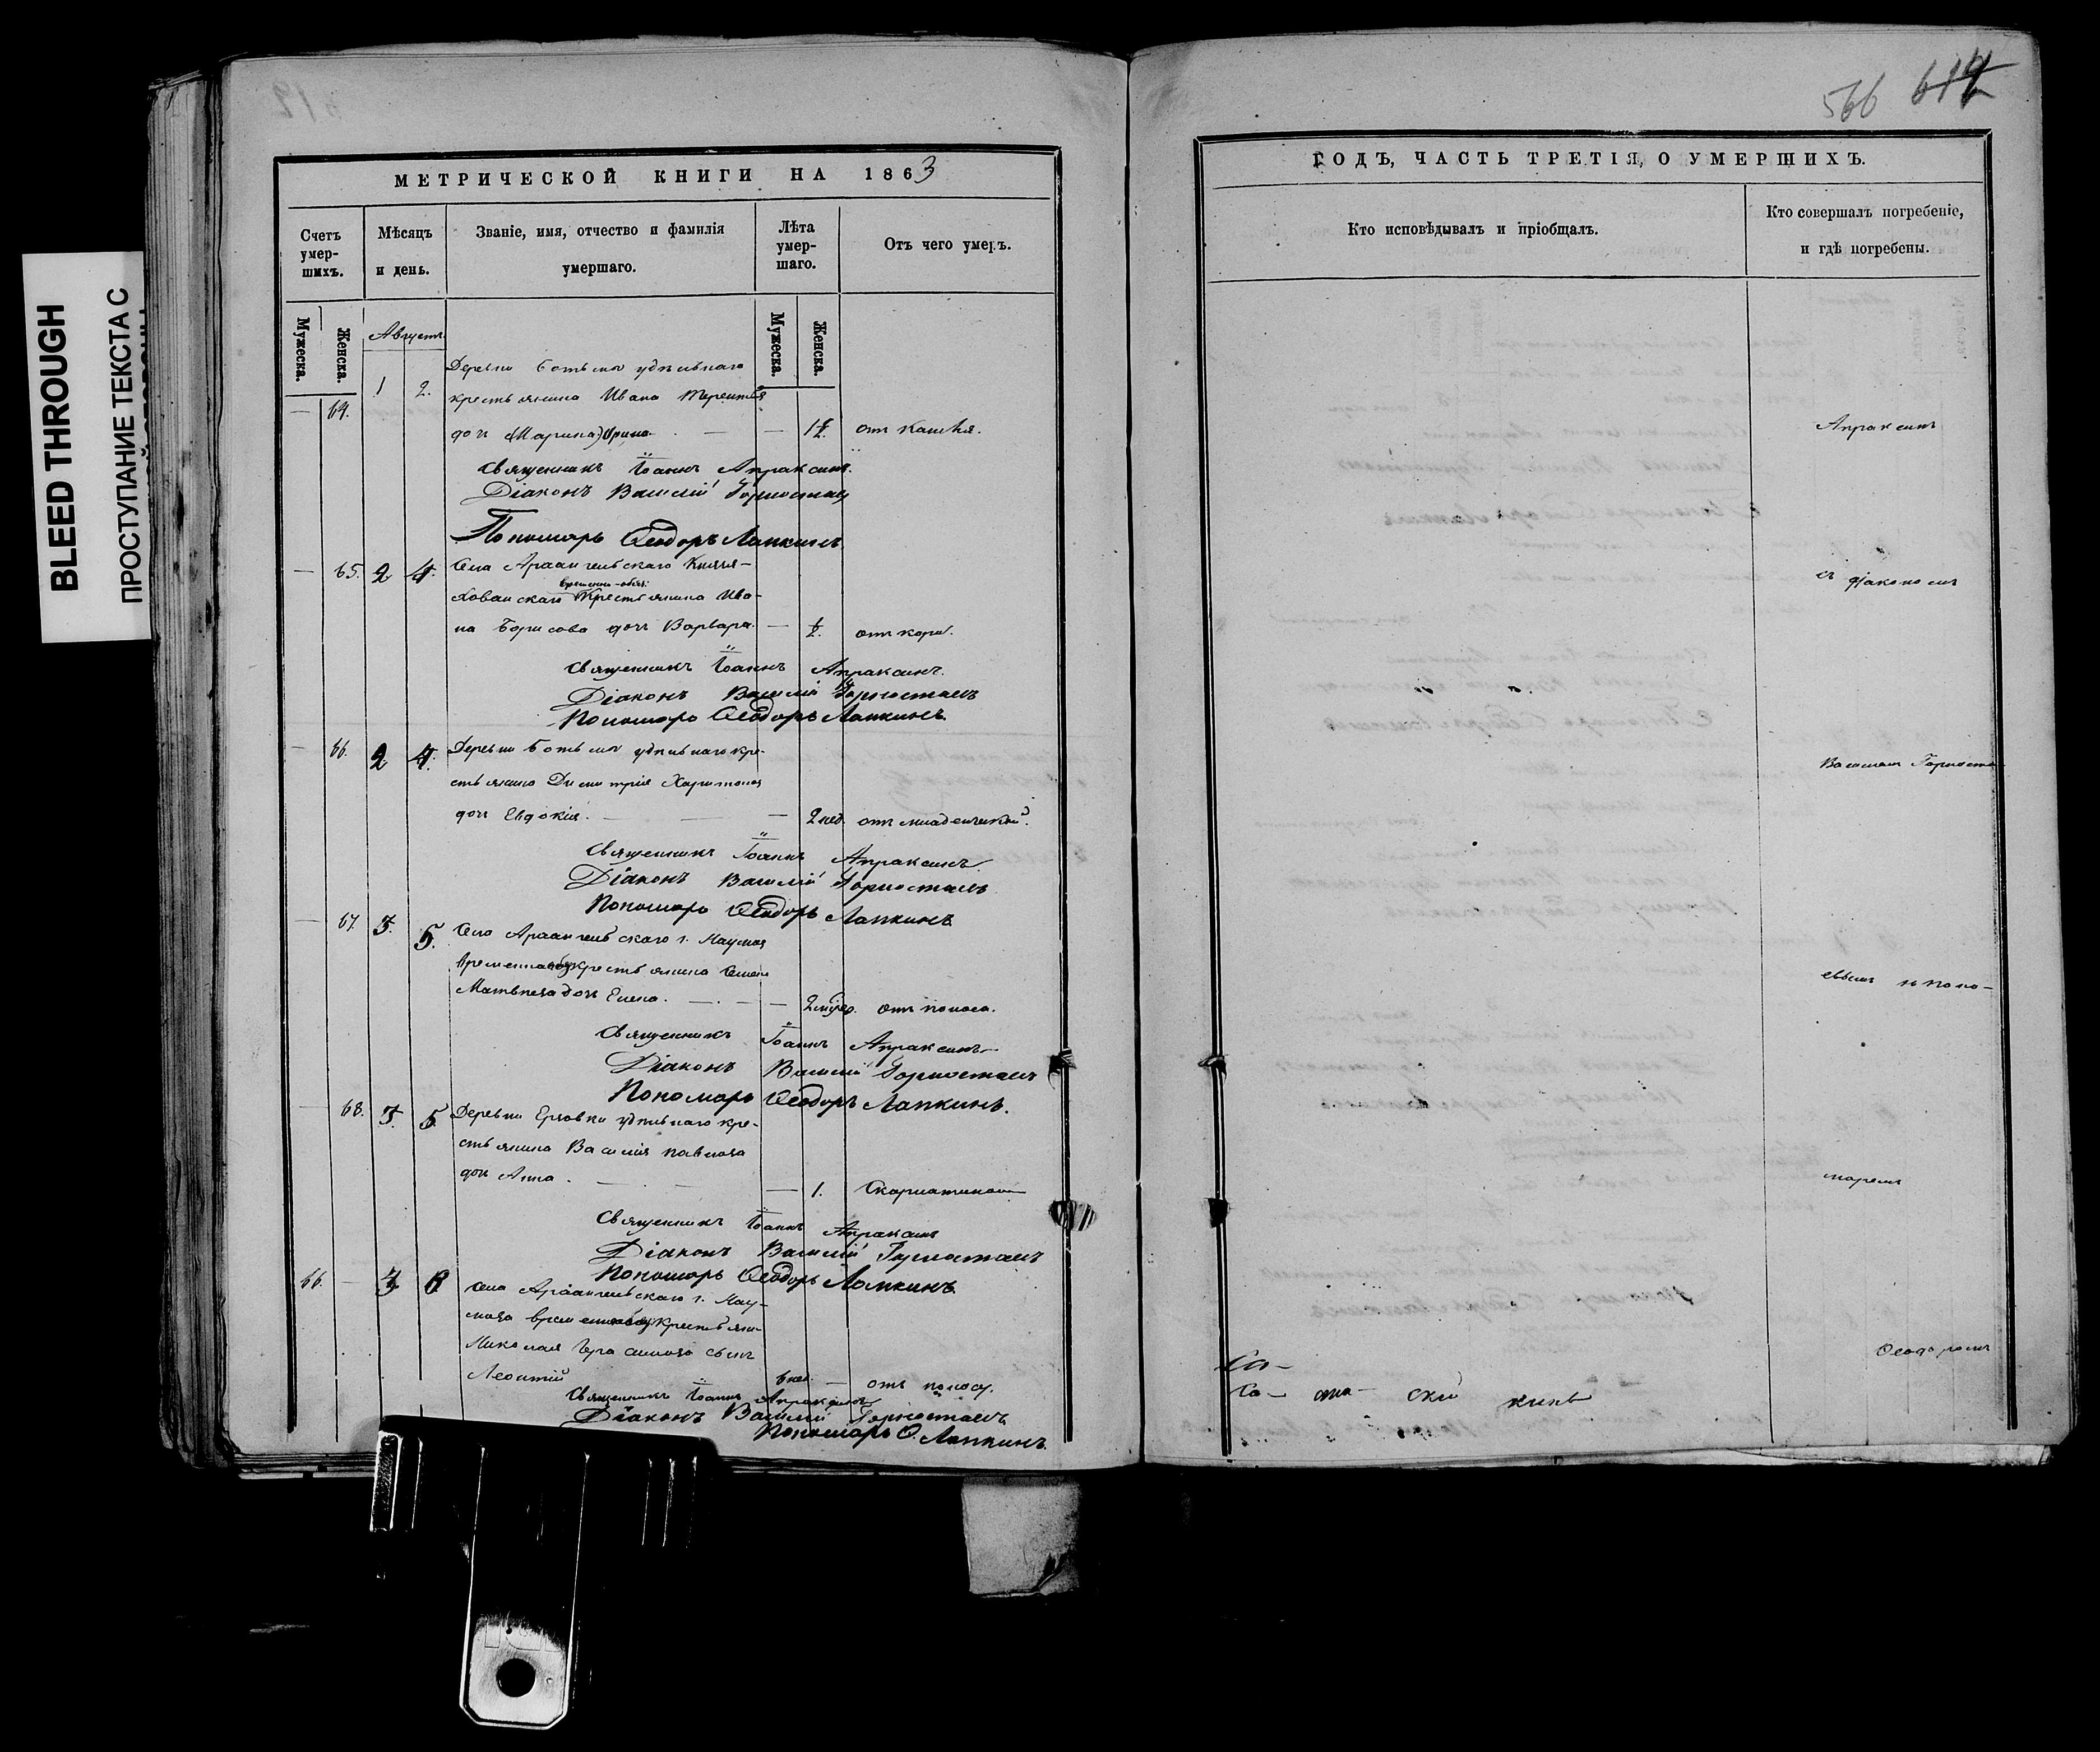 BLEED THROUGH
ПРОСТУПАНИЕ ТЕКСТА С
566 614
МЕТРИЧЕСКОЙ КНИГИ НА 1863
Счетъ умер-шихъ.
Мѣсяцъ и день.
Званіе, имя, отчество и фамилія умершаго.
Лѣта умер-шаго.
Отъ чего умеръ.
Мужеска.
Женска.
Августъ
Мужеска.
Женска.
64. 1 2.
Деревни удѣльнаго
крестьянина Ивана Терентьева
дочь (Марина) Ирина. — 1½ отъ кашля.
Священникъ Іоаннъ Апраксинъ.
Діаконъ Василій Горностаевъ
Пономарь Ѳеодоръ Лапкинъ
— 65. 2 4. Села Архангельскаго Князя
временно-обяз:
Хованскаго Крестьянина Ива-
на Борисова дочь Варвара. — ½. отъ кори.
Священникъ Іоаннъ Апраксинъ.
Діаконъ Василій Горностаевъ
Пономарь Ѳеодоръ Лапкинъ.
— 66. 2 4. Деревни удѣльнаго кре-
стьянина Димитрія Харитонова
дочь Евдокія. — 2 нед. отъ младенческой.
Священникъ Іоаннъ Апраксинъ
Діаконъ Василій Горностаевъ
Пономарь Ѳеодоръ Лапкинъ
— 67. 3. 5. Села Архангельскаго г. Наумова
временнообяз крестьянина Семена
Матвѣева дочь Елена. — 2 отъ поноса.
Священникъ Іоаннъ Апраксинъ
Діаконъ Василій Горностаевъ
Пономарь Ѳеодоръ Лапкинъ.
— 68. 3. 5 Деревни удѣльнаго кре-
стьянина Василія Павлова
дочь Анна. — 1. Скарлатиною
Священникъ Іоаннъ Апраксинъ
Діаконъ Василій Горностаевъ
Пономарь Ѳеодоръ Лапкинъ
66. — 3 6 Села Архангельскаго г. Нау-
мова временнообяз: крестьян-
Николая Герасимова сынъ
Леонтій 6 нед. — отъ поноса.
Священникъ Іоаннъ Апраксинъ
Діаконъ Василій Горностаевъ
Пономарь Ѳ. Лапкинъ
ГОДЪ, ЧАСТЬ ТРЕТІЯ, О УМЕРШИХЪ.
Кто исповѣдывалъ и пріобщалъ.
Кто совершалъ погребеніе, и гдѣ погребены.
Апраксинъ
съ діакономъ
Василіемъ Горноста-
евымъ и поно-
маремъ
Ѳеодоромъ